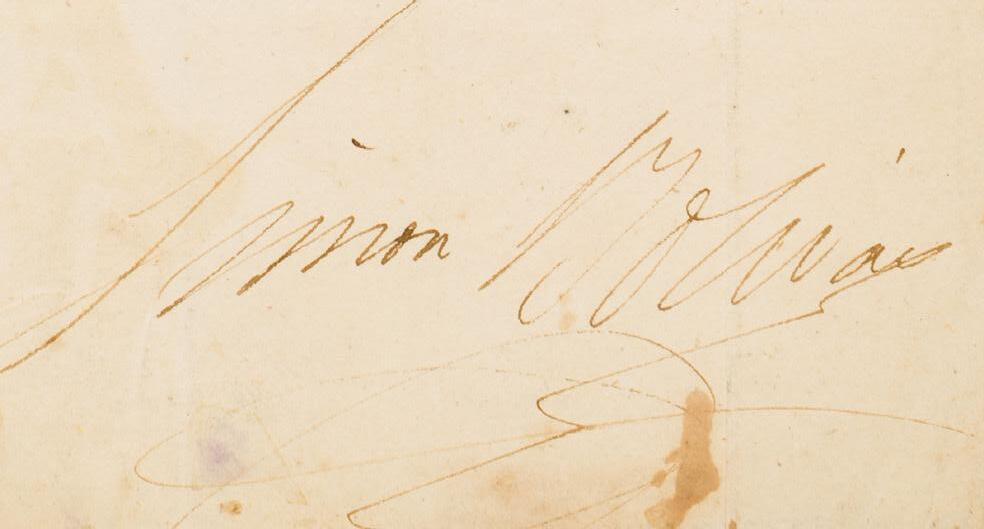 Simon Bolivar